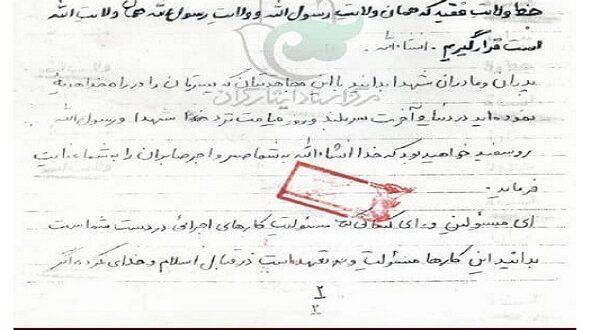 خط ولایت فقیه که همان ولایت رسول الله و ولایت رسول الله همان ولایت الله
است قرار گیریم. انشاءالله.
پدران و مادران شهدا بدانید با این مجاهدتتان که پسرتان را در راه خدا هدیه
نموده‌اید در دنیا و آخرت سربلند و روز قیامت نزد خدا شهدا و رسول الله
روسفید خواهید بود که خدا انشاءالله به شما صبر و اجر صابران را به شما عنایت
فرماید.
ای مسئولین و ای کسانی که مسئولیت کارهای اجرائی در دست شماست
بدانید این کارها مسئولیت و تعهد است در قبال اسلام و خدای نکرده اگر
۲
۲
مرکز اسناد ایثارگران